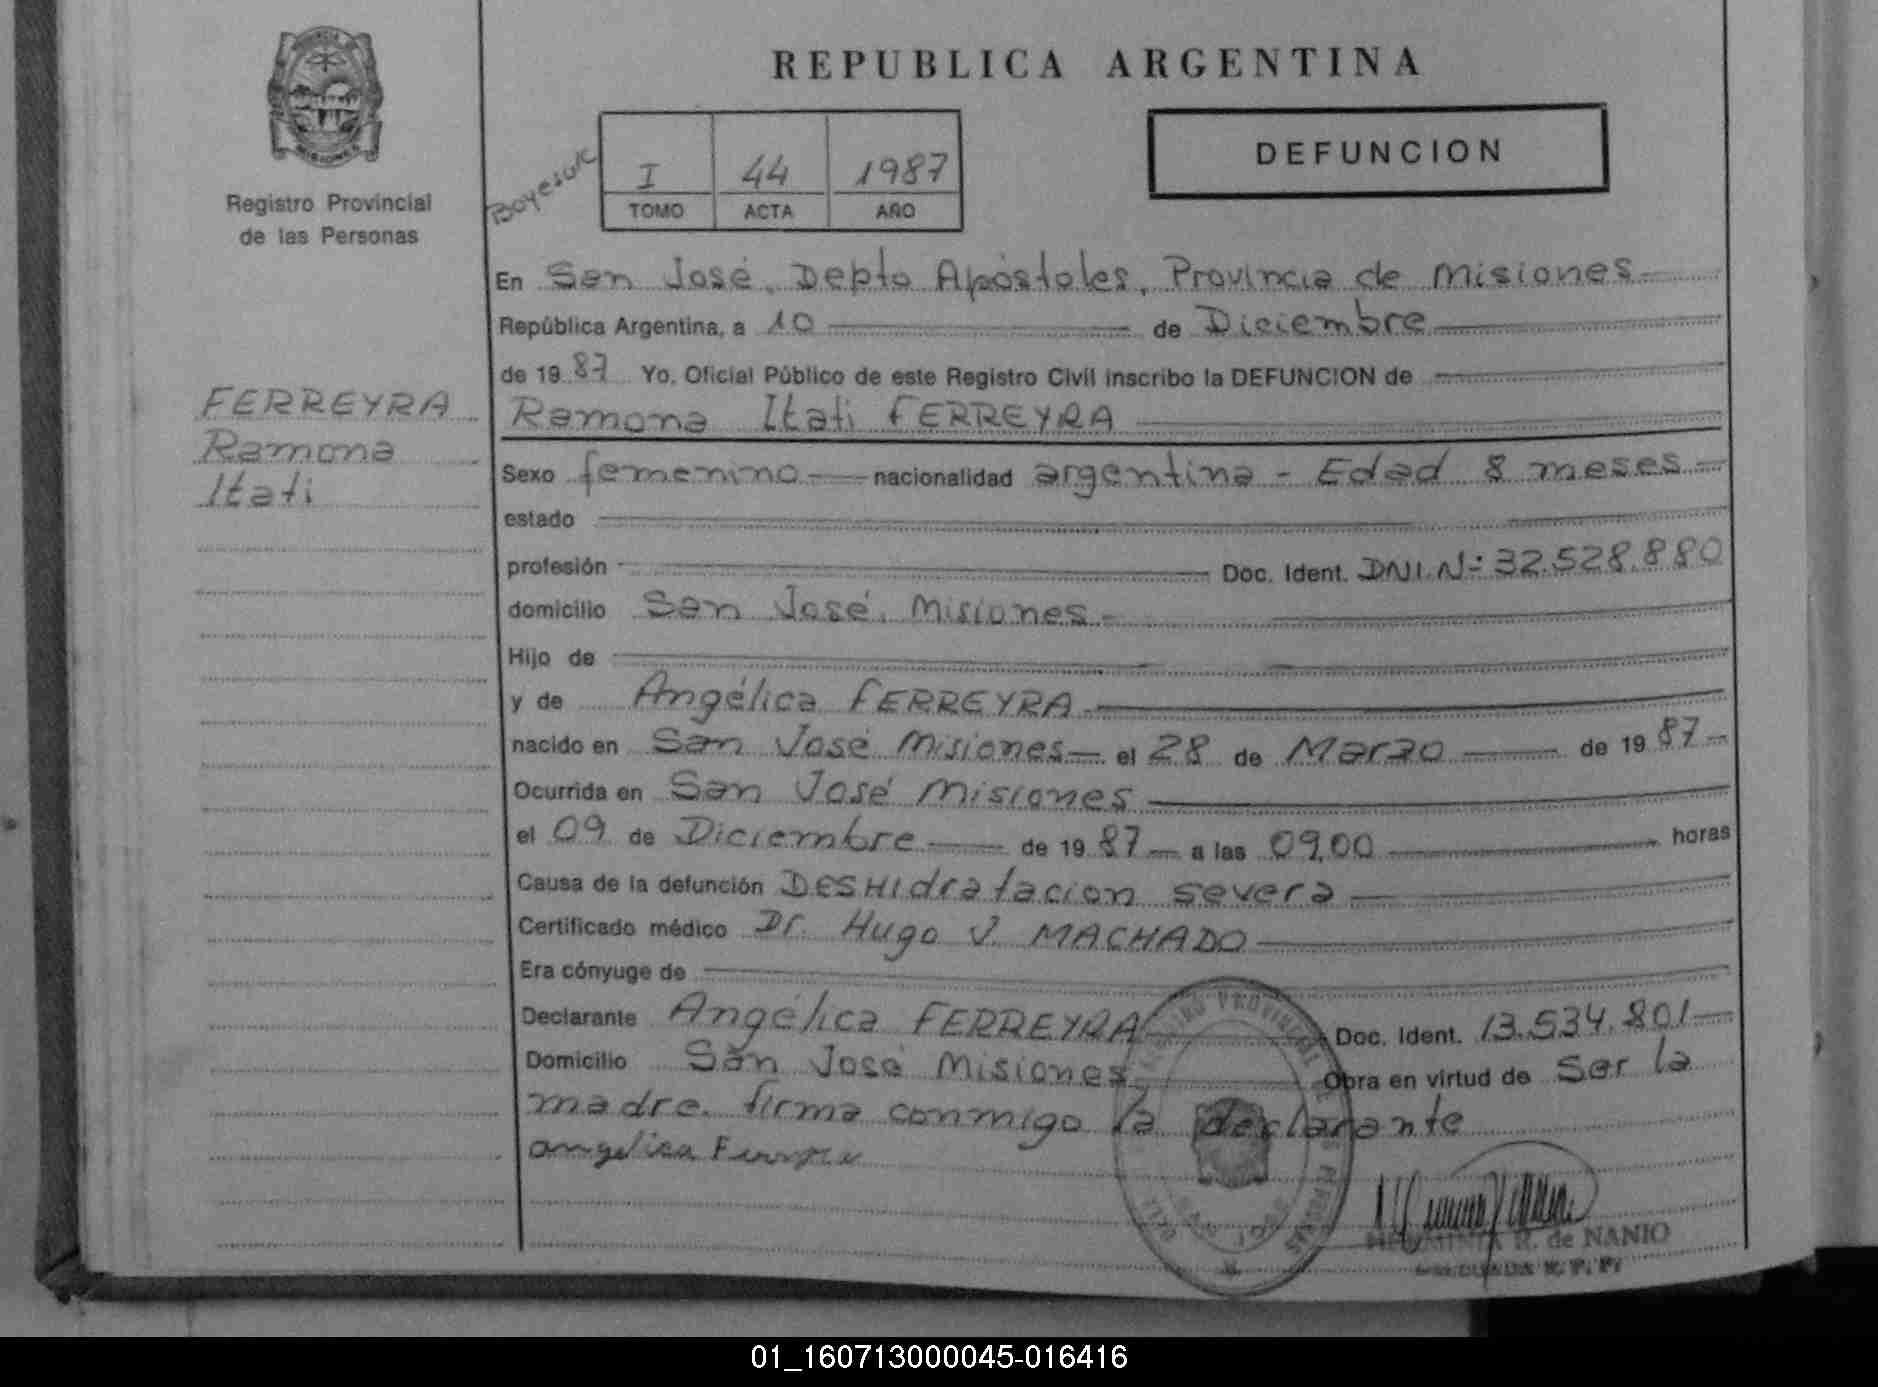 PROVINCIA DE
MISIONES
Registro Provincial
de las Personas
FERREYRA
Ramona
Itati
REPUBLICA ARGENTINA
I 44 1987
TOMO ACTA AÑO
DEFUNCION
En San José, Depto Apóstoles, Provincia de Misiones
República Argentina, a 10 de Diciembre
de 19 87 Yo, Oficial Público de este Registro Civil inscribo la DEFUNCION de
Ramona Itati FERREYRA
Sexo femenino nacionalidad argentina - Edad 8 meses
estado
profesión Doc. Ident. DNI.Nº 32.528.880
domicilio San José, Misiones
Hijo de
y de Angélica FERREYRA
nacido en San José Misiones el 28 de Marzo de 19 87
Ocurrida en San José Misiones
el 09 de Diciembre de 19 87 a las 09,00 horas
Causa de la defunción DESHIdratacion severa
Certificado médico Dr. Hugo J. MACHADO
Era cónyuge de
Declarante Angélica FERREYRA Doc. Ident. 13.534.801
Domicilio San José Misiones Obra en virtud de Ser la
madre. firma conmigo la declarante
angelica
R. de NANIO
01_160713000045-016416